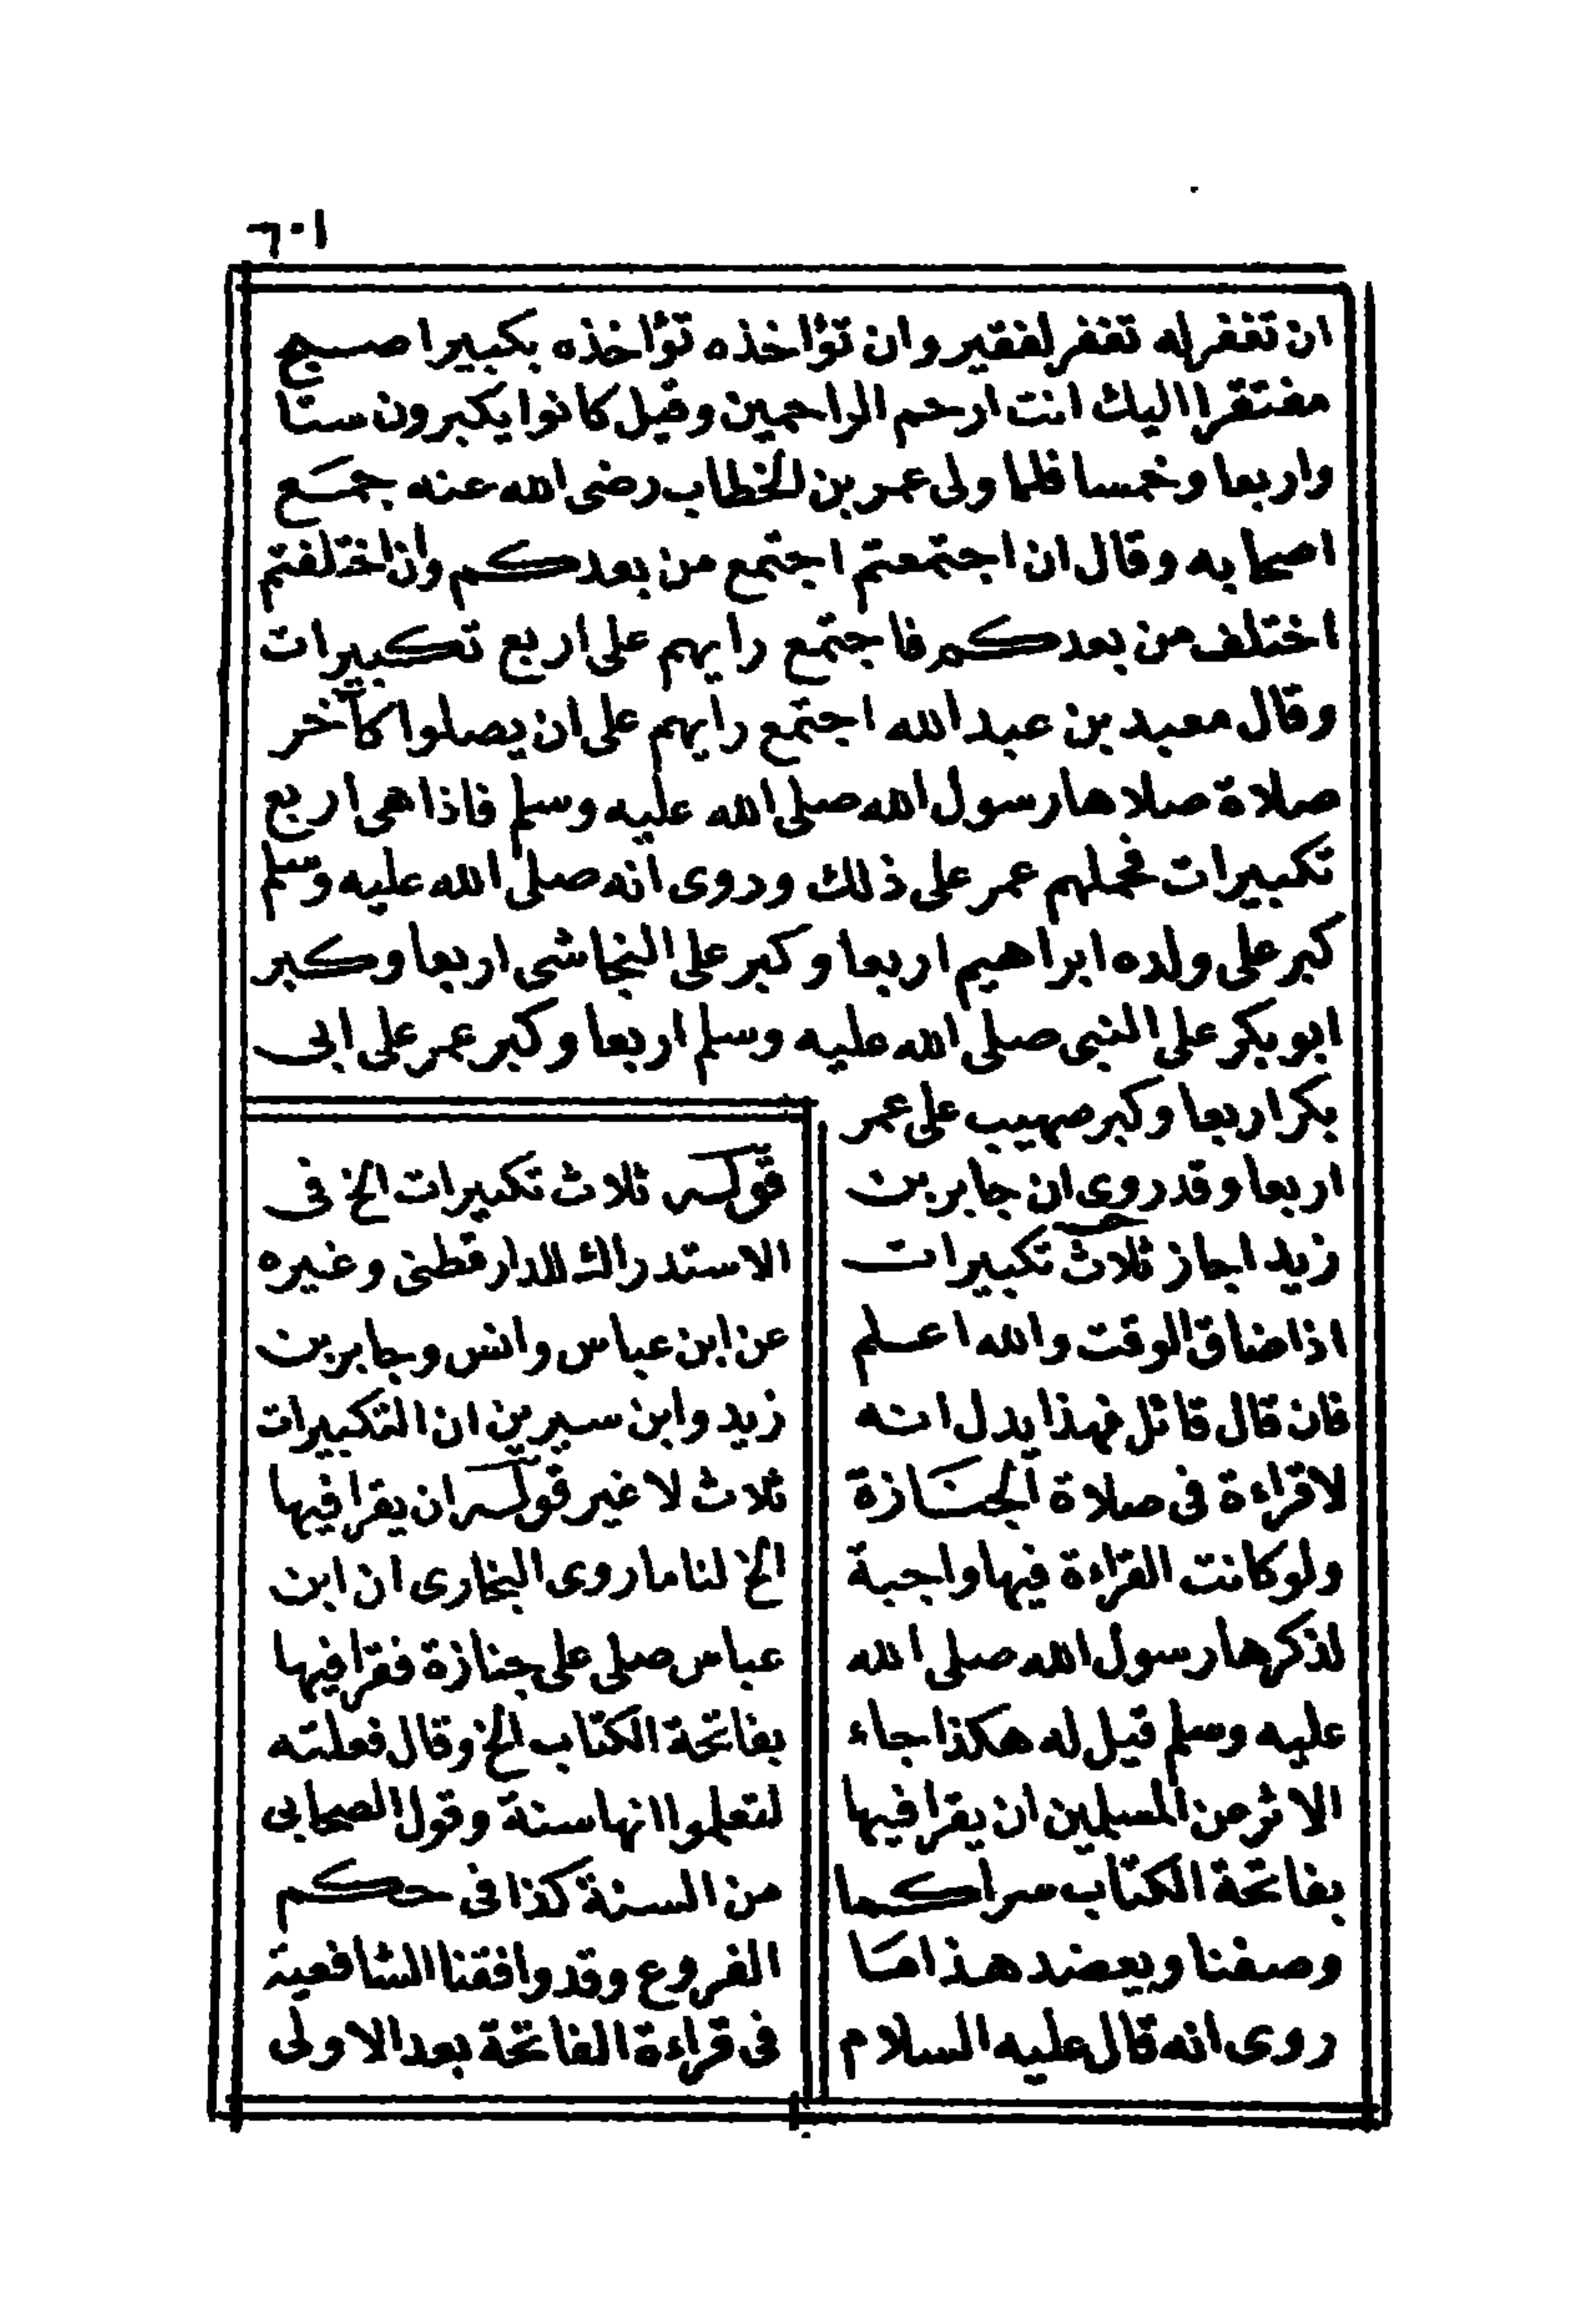 ١٠٦
ان تغفر له تغفر لفقير وان تؤاخذه تؤاخذه بكبير اصبح
مفتقرا اليك انت ارحم الراحمين وقيل كانوا يكبرون ستا
واربعا وخمسا فلما ولى عمر بن الخطاب رضى الله عنه جمع
اصحابه وقال ان اجتمعتم اجتمع من بعدكم وان اختلفتم
اختلف من بعدكم فاجتمع رايهم على اربع تكبيرات
وقال معبد بن عبد الله اجتمع رايهم على ان يصلوا كآخر
صلاة صلاها رسول الله صلى الله عليه وسلم فاذا هى اربع
تكبيرات فحملهم عمر على ذلك وروى انه صلى الله عليه وسلم
كبر على ولده ابراهيم اربعا وكبر على النجاشى اربعا وكبر
ابو بكر على النبى صلى الله عليه وسلم اربعا وكبر عمر على ابى
بكر اربعا وكبر صهيب على عمر
اربعا وقد روى ان جابر بن
زيد اجاز ثلاث تكبيرات
اذا ضاق الوقت والله اعلم
فان قال قائل فهذا يدل انه
لا قراءة فى صلاة الجنازة
ولو كانت القراءة فيها واجبة
لذكرها رسول الله صلى الله
عليه وسلم قيل له هكذا جاء
الاثر من المسلمين ان يقرا فيها
بفاتحة الكتاب سرا كما
وصفنا ويعضد هذا ما
روى انه قال عليه السلام
قوله ثلاث تكبيرات الخ فى
الاستدراك للدارقطنى وغيره
عن ابن عباس وانس وجابر بن
زيد وابن سيرين ان التكبيرات
ثلاث لا غير قوله ان يقرا فيها
الخ لنا ما روى البخارى ان ابن
عباس صلى على جنازة فقرا فيها
بفاتحة الكتاب الخ وقال فعلته
لتعلموا انها سنة وقول الصحابى
من السنة كذا فى حكم
الفروع وقد وافقنا الشافعية
فى قراءة الفاتحة بعد الاولى